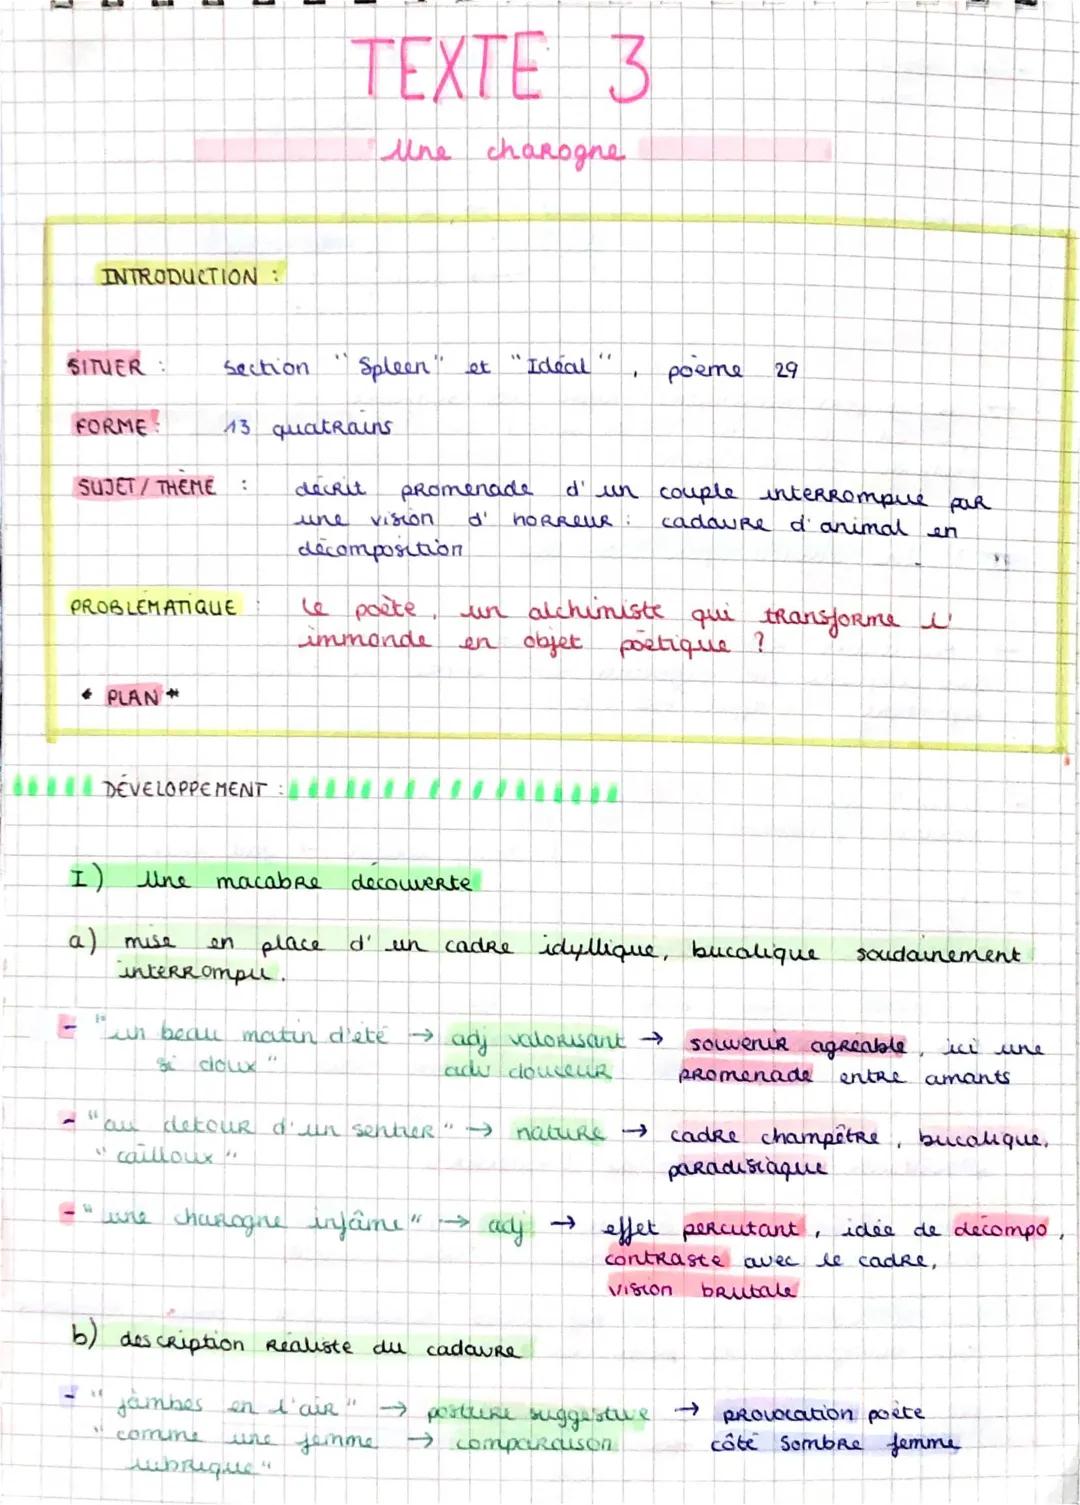 TEXTE 3
Une charogne
INTRODUCTION :
SITUER : section "Spleen" et "Idéal", poème 29
FORME : 13 quatrains
SUJET / THÈME : décrit promenade d'un couple interrompue par
une vision d'horreur : cadavre d'animal en
décomposition
PROBLÉMATIQUE : Le poète, un alchimiste qui transforme l'
immonde en objet poétique ?
* PLAN *
DÉVELOPPEMENT :
I) Une macabre découverte
a) mise en place d'un cadre idyllique, bucolique soudainement
interrompu.
- "un beau matin d'été → adj valorisant → souvenir agréable, ici une
si doux" adv douceur promenade entre amants
- "au détour d'un sentier" → nature → cadre champêtre, bucolique,
"cailloux" paradisiaque
- "une charogne infâme" → adj → effet percutant, idée de décompo,
contraste avec le cadre,
vision brutale
b) description réaliste du cadavre
- "jambes en l'air" → posture suggestive → provocation poète
"comme une femme → comparaison côté sombre femme
lubrique"